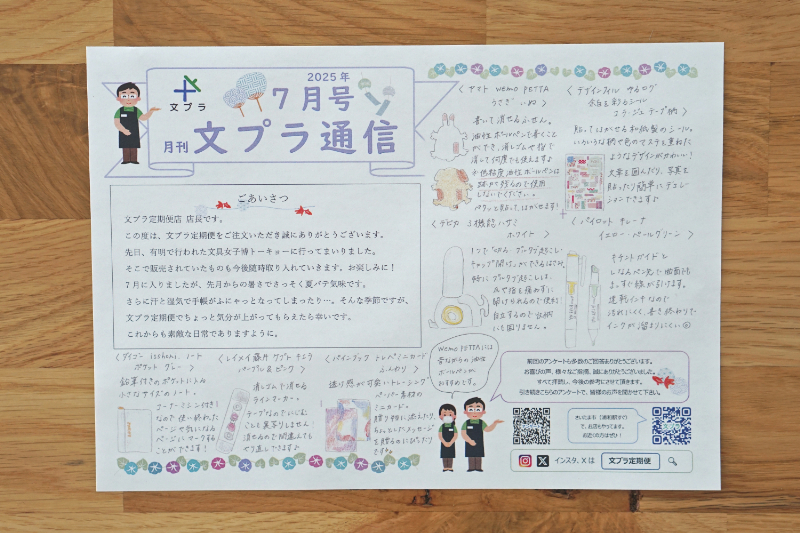 文プラ
2025年
7月号
月刊 文プラ通信
ごあいさつ
文プラ定期便店 店長です。
この度は、文プラ定期便をご注文いただき誠にありがとうございます。
先日、有明で行われた文具女子博トーキョーに行ってまいりました。
そこで販売されていたものも今後随時取り入れていきます。お楽しみに！
7月に入りましたが、先月からの暑さでさっそく夏バテ気味です。
さらに汗と湿気で手帳がふにゃっとなってしまったり…。そんな季節ですが、
文プラ定期便でちょっと気分が上がってもらえたら幸いです。
これからも素敵な日常でありますように。
〈ヤマト wemo PETTA
うさぎ いぬ 〉
書いて消せるふせん。
油性ボールペンで書くこと
ができ、消しゴムや指で
消して何度でも使えますよ
※低粘度油性ボールペンは
跡が残るので使用
しないでください。
ペタッと貼って、はがせます!
〈デザインフィル
貼ってはがせる和紙製のシール。
いろいろな柄や色のマステを重ねた
ようなデザインがかわいい！
文章を囲んだり、写真を
貼ったり簡単にデコレー
ションできますよ
〈デビカ 3機能ハサミ
ホワイト 〉
〈パイロット キレーナ
イエロー・ペールグリーン 〉
キチントガイドと
しなるペン先で曲面にも
まっすぐ線が引けます。
速乾インキなので
汚れにくく、書き終わりで
インクが溜まりにくい◎
ノート
ポケット グレー 〉
鉛筆付きのポケットに入る
小さなサイズのノート。
コーナーミシン目付き!
なので使い終わった
ページや気になる
ページにマークする
ことができます！
〈レイメイ藤井 ケシテ キエラ
パープル&ピンク 〉
消しゴムで消せる
ラインマーカー。
テープなのでにじむ
ことも裏写りもしません
消せるので間違えても
やり直しできます♪
ミニカード
ふんわり 〉
透け感が可愛いトレーシング
ペーパー素材の
ミニカード。
贈り物に添えたり、
ちょっとしたメッセージ
を贈るのにぴったり
です
wemo PETTAには
昔ながらの油性
ボールペンが
おすすめです。
前回のアンケートも多数のご回答ありがとうございます。
お喜びの声、様々なご指摘、誠にありがとうございました。
すべて拝読し、今後の参考にさせて頂きます。
引き続きこちらのアンケートで、皆様のお声を聞かせて下さい。
さいたま市（浦和駅すぐ）
で、お店もやってます。
お近くの方はぜひ！
インスタ、Xは 文プラ定期便